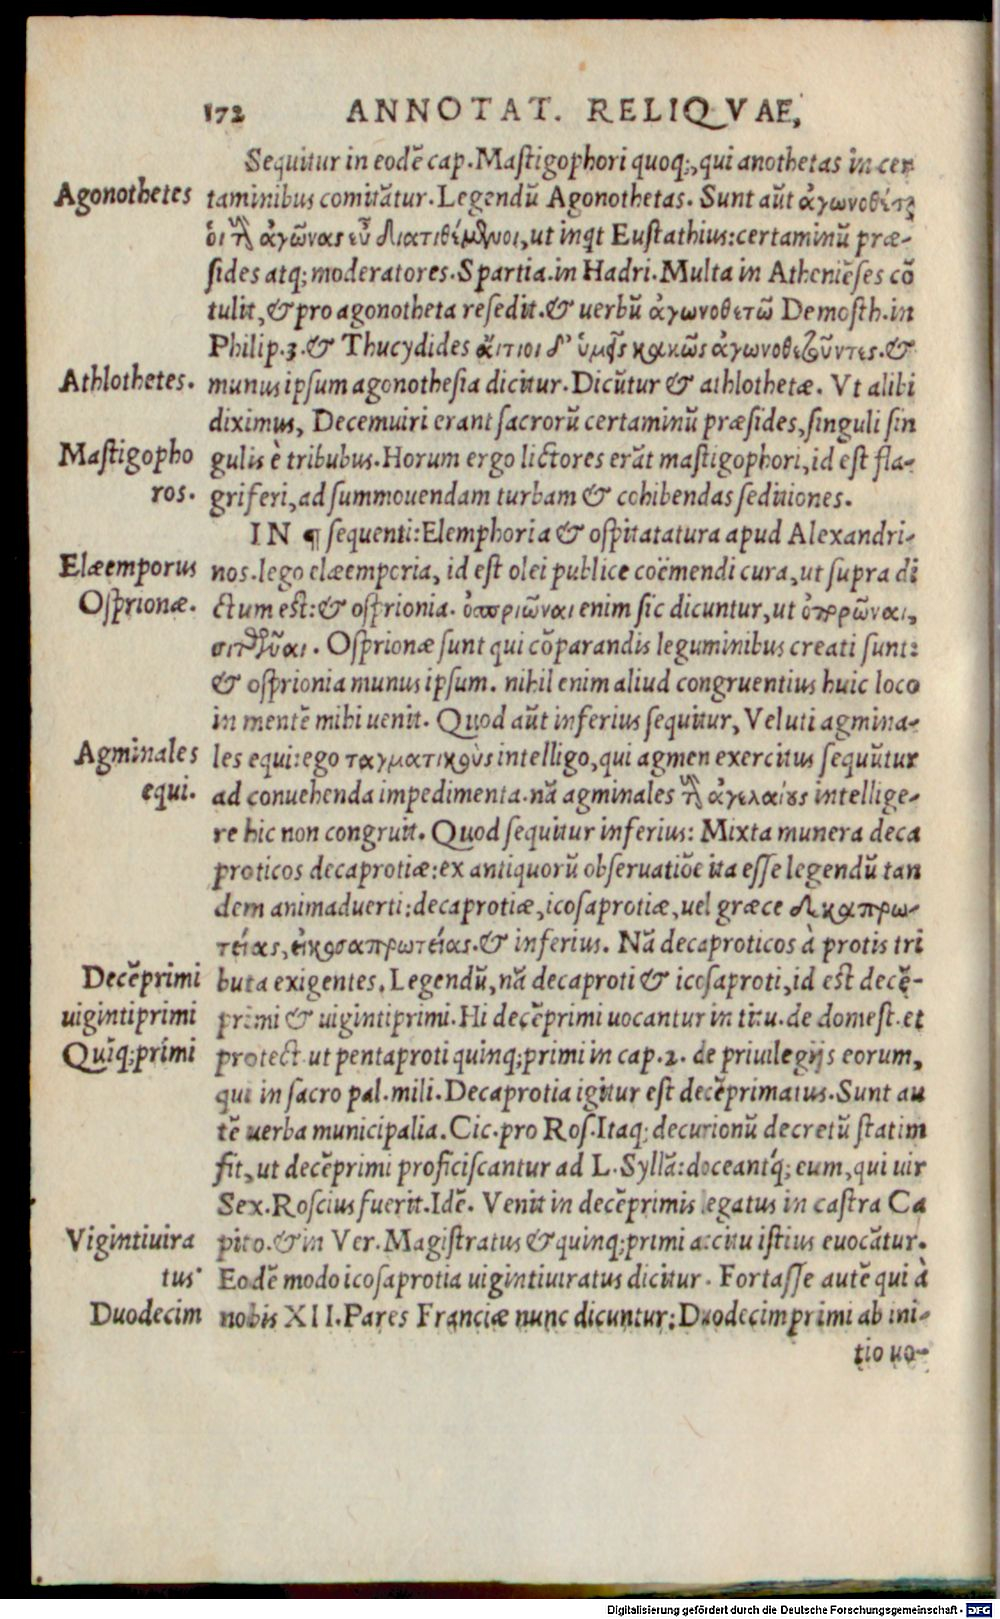 172 ANNOTAT. RELIQVAE,
Sequitur in eodē cap. Mastigophori quoq;, qui anothetas in cer
Agonothetes taminibus comitātur. Legendū Agonothetas. Sunt aūt ἀγωνοθέται
οἱ τὸν ἀγῶνας εὖ διατιθέμενοι, ut inqt Eustathius: certaminū præ-
sides atq; moderatores. Spartia. in Hadri. Multa in Atheniēses cō
tulit, & pro agonotheta resedit. & uerbū ἀγωνοθετῶ Demosth. in
Philip. 3. & Thucydides ἄιτιοι δ' ὑμεῖς κακῶς ἀγωνοθετοῦντες. &
Athlothetes. munus ipsum agonothesia dicitur. Dicūtur & athlothetæ. Vt alibi
diximus, Decemuiri erant sacrorū certaminū præsides, singuli sin
Mastigopho gulis è tribubus. Horum ergo lictores erāt mastigophori, id est fla-
ros. griferi, ad summouendam turbam & cohibendas seditiones.
IN ¶ sequenti: Elemphoria & ospitatatura apud Alexandri-
Elæemporus nos. lego elæemporia, id est olei publice coëmendi cura, ut supra di
Osprionæ. ctum est: & osprionia. ὀσπριῶναι enim sic dicuntur, ut ὀπρρῶναι,
σιτῶναι. Osprionæ sunt qui cōparandis leguminibus creati sunt:
& osprionia munus ipsum. nihil enim aliud congruentius huic loco
in mentē mihi uenit. Quod aūt inferius sequitur, Veluti agmina-
Agminales les equi: ego ταγματικοὺς intelligo, qui agmen exercitus sequūtur
equi. ad conuehenda impedimenta. nā agminales τοὺς ἀγελαίους intellige-
re hic non congruit. Quod sequitur inferius: Mixta munera deca
proticos decaprotiæ: ex antiquorū obseruatiōe ita esse legendū tan
dem animaduerti: decaprotiæ, icosaprotiæ, uel græce δεκαπρω-
τείας, εἰκοσαπρωτείας. & inferius. Nā decaproticos à protis tri
Decēprimi buta exigentes. Legendū, nā decaproti & icosaproti, id est decē-
uigintiprimi primi & uigintiprimi. Hi decēprimi uocantur in ti. u. de domest. et
Quīq;primi protect. ut pentaproti quinq;primi in cap. 2. de priuilegijs eorum,
qui in sacro pal. mili. Decaprotia igitur est decēprimatus. Sunt au
tē uerba municipalia. Cic. pro Ros. Itaq; decurionū decretū statim
fit, ut decēprimi proficiscantur ad L. Syllā: doceantq́; eum, qui uir
Sex. Roscius fuerit. Idē. Venit in decēprimis legatus in castra Ca
Vigintiuira pito. & in Ver. Magistratus & quinq;primi accitu istius euocātur.
tus. Eodē modo icosaprotia uigintiuiratus dicitur. Fortasse autē qui à
Duodecim nobis XII. Pares Franciæ nunc dicuntur: Duodecimprimi ab ini-
tio uo-
Digitalisierung gefördert durch die Deutsche Forschungsgemeinschaft - DFG